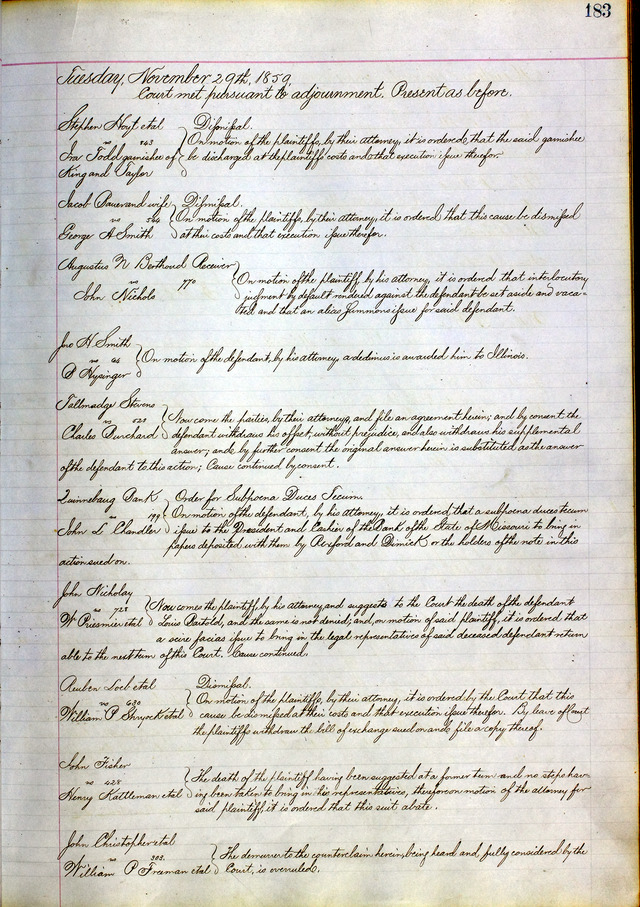 183
Tuesday, November 29th, 1859
Court met pursuant to adjournment. Present as before.
Stephen Hoyt etal Dismissal.
vs 263 On motion of the plaintiffs, by their attorney, it is ordered, that the said garnishee
Ira Todd garnishee of be discharged at the plaintiffs costs and that execution issue therefor.
King and Taylor
Jacob and wife Dismissal.
vs On motion of the plaintiffs, by their attorney, it is ordered that this cause be dismissed
George A Smith at their costs and that execution issue therefor.
Augustus N Berthoud Receiver
vs 770 On motion of the plaintiff by his attorney, it is ordered that interlocutory
John Nichols judgment by default rendered against the defendant be set aside and vaca-
ted and that an alias Summons issue for said defendant.
Jno H. Smith
vs On motion of the defendant, by his attorney, a dedimus is awarded him to Illinois.
Hysinger
Tallmadge Stevens
vs Now come the parties, by their attorneys, and file an agreement herein; and by consent the
Charles Burchard defendant withdraws his offset, without prejudice, and also withdraws his supplemental
answer; and by further consent the original answer herein is substituted as the answer
of the defendant to this action; Cause continued by consent.
Quinnebaug Bank Order for Subpoena Duces Tecum.
vs On motion of the defendant, by his attorney, it is ordered, that a subpoena duces tecum
John L Chandler issue to the President and Cashier of the Bank of the State of Missouri to bring in
papers deposited with them by Rexford and Dimick or the holders of the note in this
action sued on.
John Nicholay
vs 728 Now comes the plaintiff, by his attorney and suggests to the Court the death of the defendant
W Priesmier etal Louis and the same is not denied; and, on motion of said plaintiff, it is ordered that
a scire facias issue to bring in the legal representatives of said deceased defendant return
able to the next term of this Court. Cause continued.
Reuben Loeb etal Dismissal.
vs 680 On motion of the plaintiffs, by their attorney, it is ordered by the Court that this
William P Shryock etal cause be dismissed at their costs and that execution issue therefor. By leave of Court
the plaintiffs withdraw the bill of exchange sued on and file a copy thereof.
John Fisher
vs 428 The death of the plaintiff having been suggested at a former term and no steps hav-
Henry Kattleman etal ing been taken to bring in his representatives, thereon on motion of the attorney for
said plaintiff, it is ordered that this suit abate.
John Christopher etal
vs 303. The demurrer to the counterclaim herein, being heard and fully considered by the
William P Freeman etal Court, is overruled.